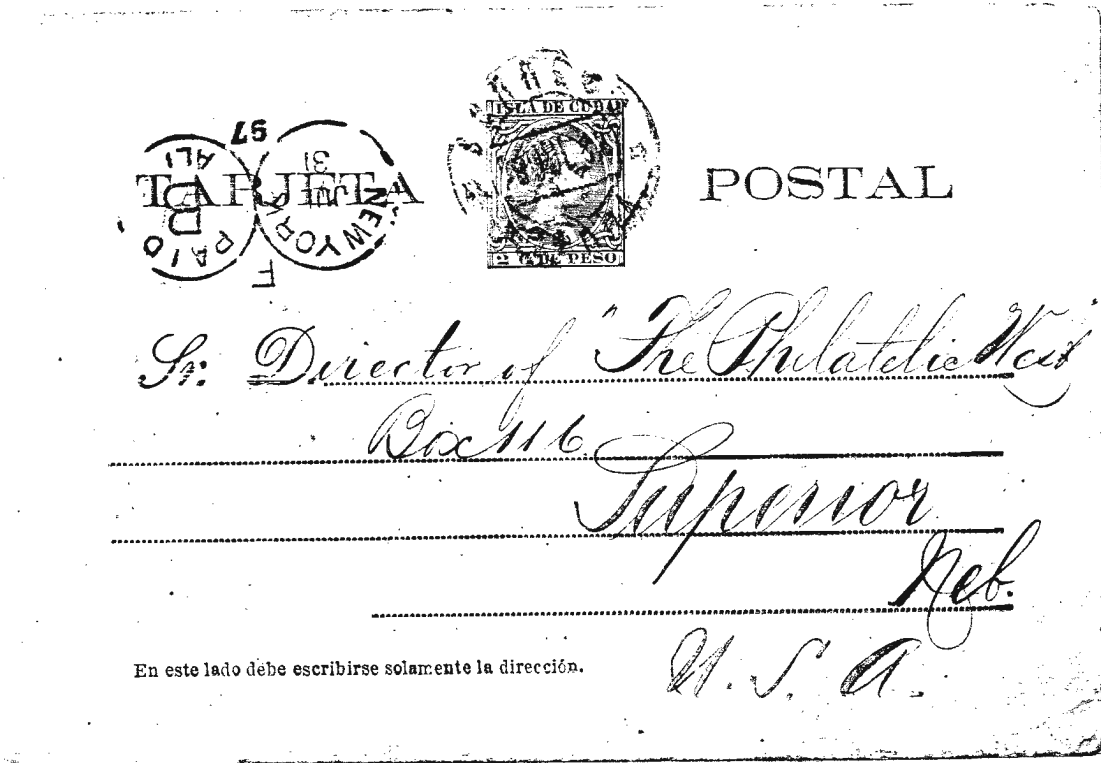 ISLA DE CUBA
TARJETA POSTAL
97
NEW YORK
31
PAID
B
ALL
F
2 C. DE PESO
Sr: Director of "The Philatelic West"
Box 116
Superior
Neb.
U. S. A.
En este lado debe escribirse solamente la dirección.